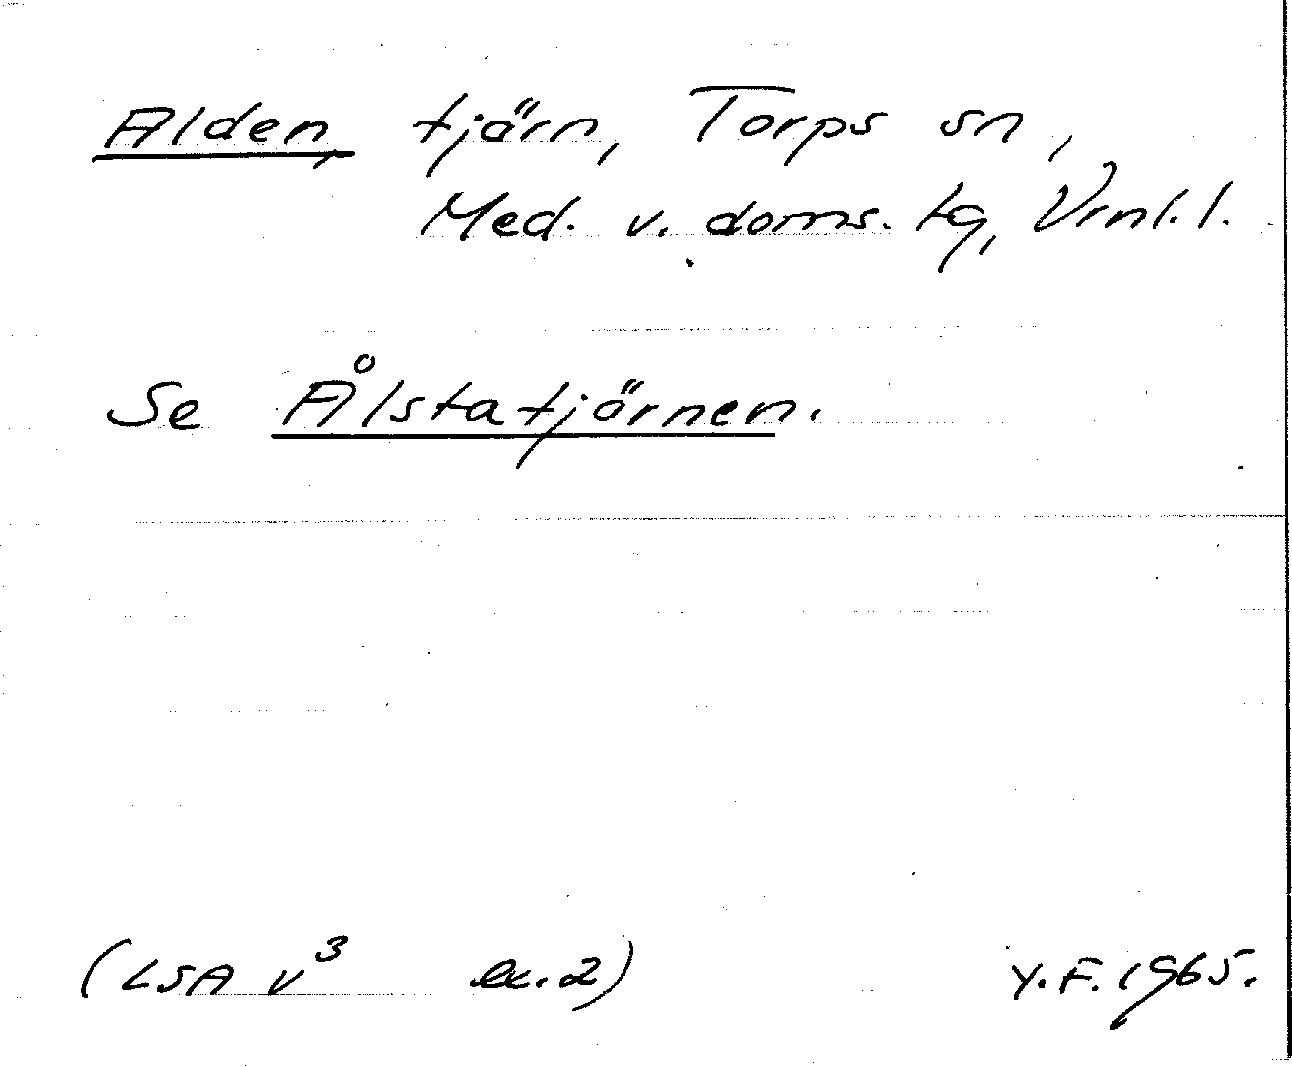 Alden, tjärn, Torps sn,
Med. v. doms. tg, Vrnl. l.
Se Ålstatjärnen.
(LSA v³ ex. 2) Y.F. 1965.